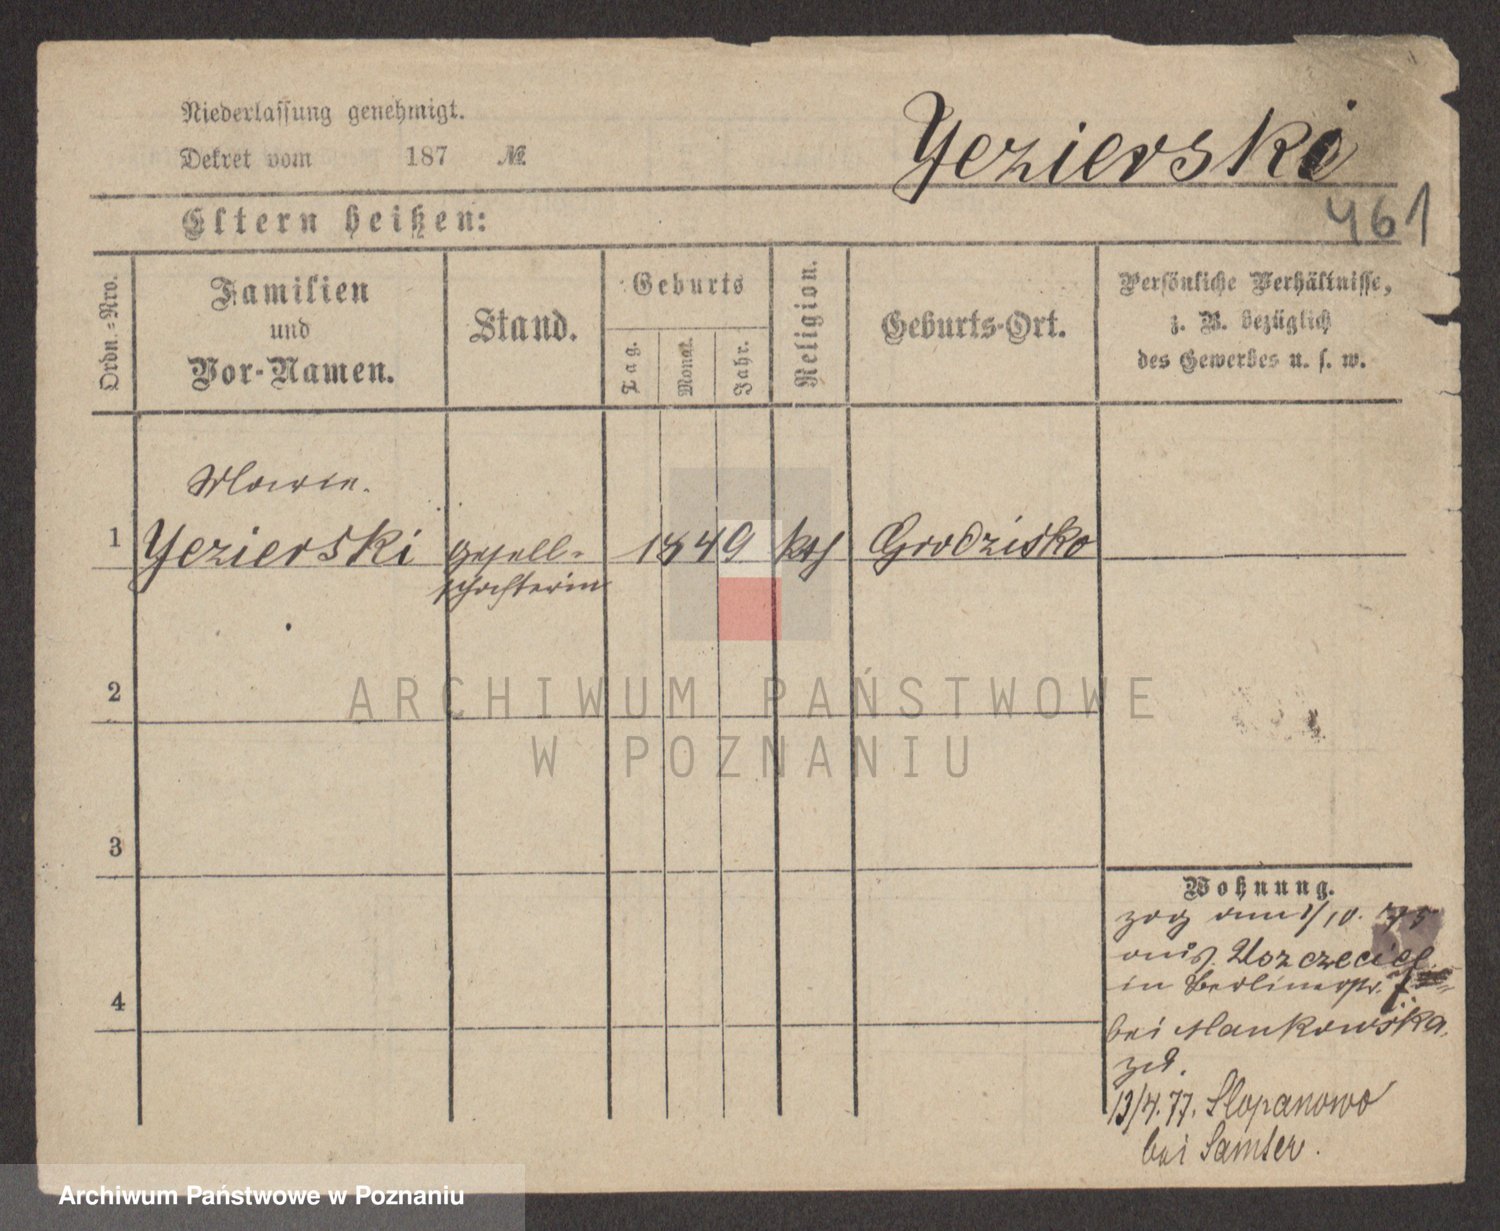 Niederlassung genehmigt.
Dekret vom 187 №
Yezierski
461
Eltern heißen:
Ordn.-Nro.
Familien
und
Vor-Namen.
Stand.
Geburts
Tag.
Monat.
Jahr.
Religion.
Geburts-Ort.
Persönliche Verhältnisse,
z. B. bezüglich
des Gewerbes u. s. w.
Marie.
1 Yezierski Gesell- 1849 kth Grodzisko
schafterin
2
ARCHIWUM PAŃSTWOWE
W POZNANIU
3
Wohnung.
zog am 1/10. 75
aus
in Berlinerstr.
4
bei Mankowska
13/4. 77. Slopanowo
bei Samter.
Archiwum Państwowe w Poznaniu